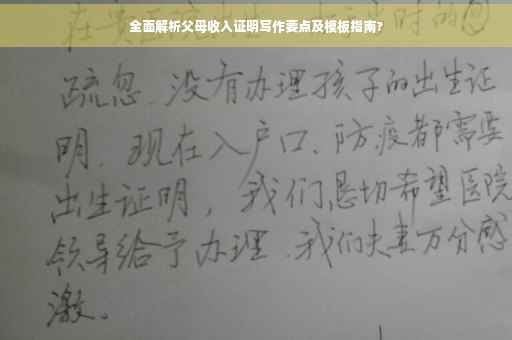 全面解析父母收入证明写作要点及模板指南?
疏忽、没有办理孩子的出生证
明、现在入户口、防疫都需要
出生证明，我们恳切希望医院
领导给予办理、我们夫妻万分感
激。